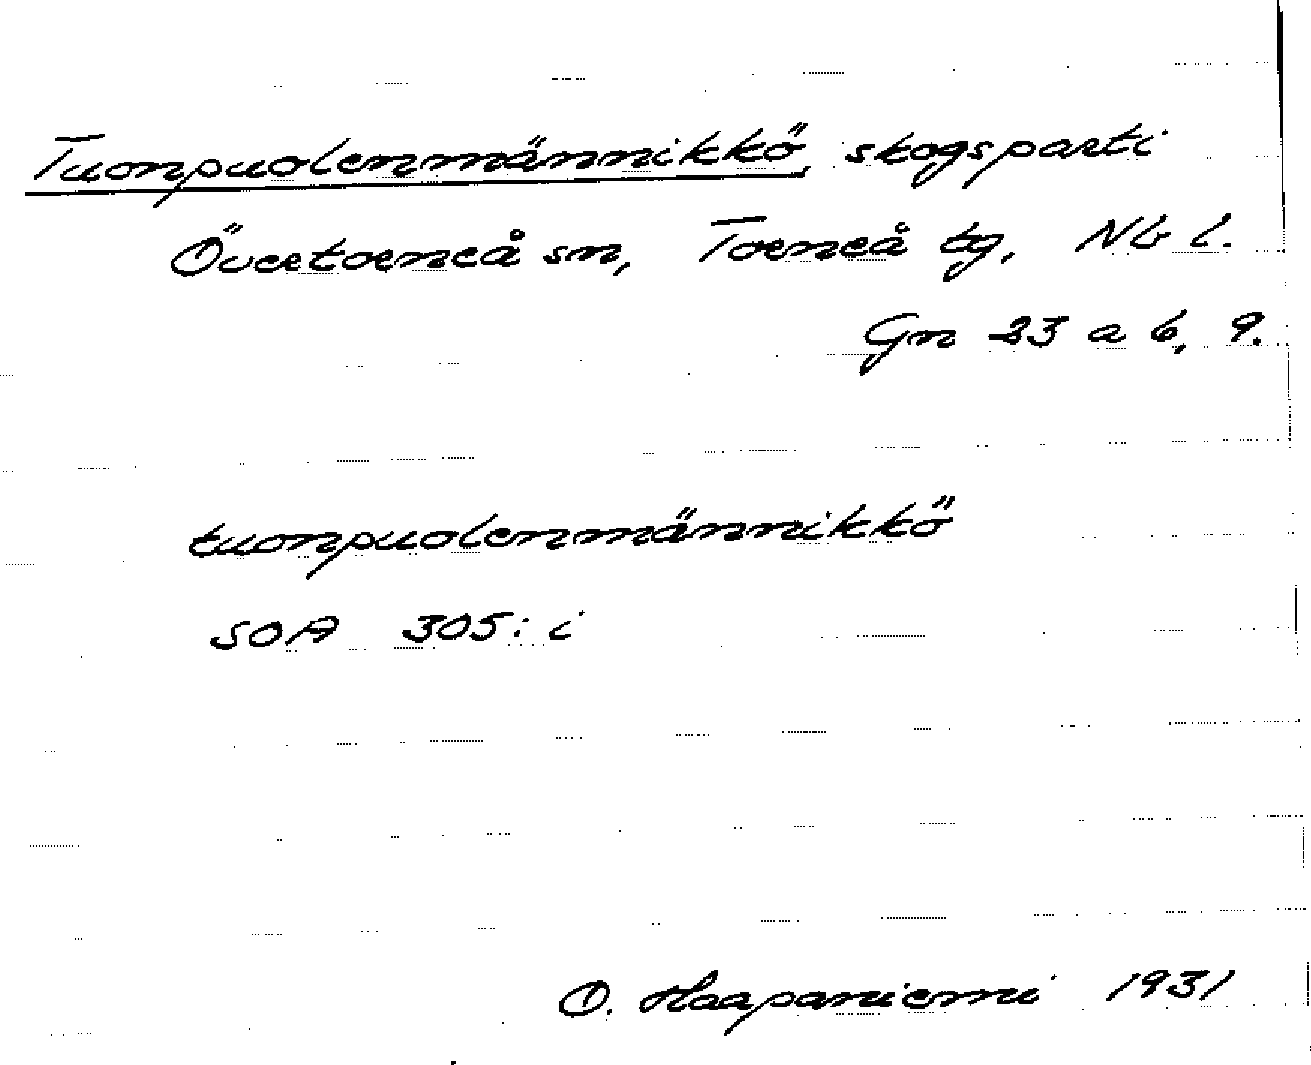 Tuonpuolenmännikkö, skogsparti
Övertorneå sn, Torneå tg, Nb l.
Gn 23 a b, 9.
tuonpuolenmännikkö
SOA 305: i
O. Haapaniemi 1931